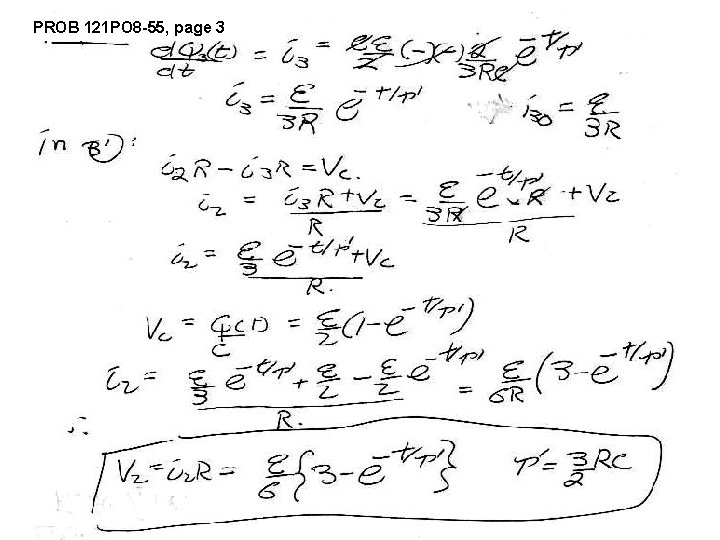 PROB 121PO8-55, page 3
dq₃(t)/dt = i₃ = εC/2 (-)(-) 2/3RC e^(-t/τ')
i₃ = ε/3R e^(-t/τ') i₃₀ = ε/3R
in B'):
i₂R - i₃R = Vc.
i₂ = (i₃R + Vc)/R = (ε/3R e^(-t/τ') · R + Vc)/R
i₂ = (ε/3 e^(-t/τ') + Vc)/R.
Vc = q(t)/C = ε/2 (1 - e^(-t/τ'))
i₂ = (ε/3 e^(-t/τ') + ε/2 - ε/2 e^(-t/τ'))/R. = ε/6R (3 - e^(-t/τ'))
∴
V₂ = i₂R = ε/6 {3 - e^(-t/τ')} τ' = 3/2 RC